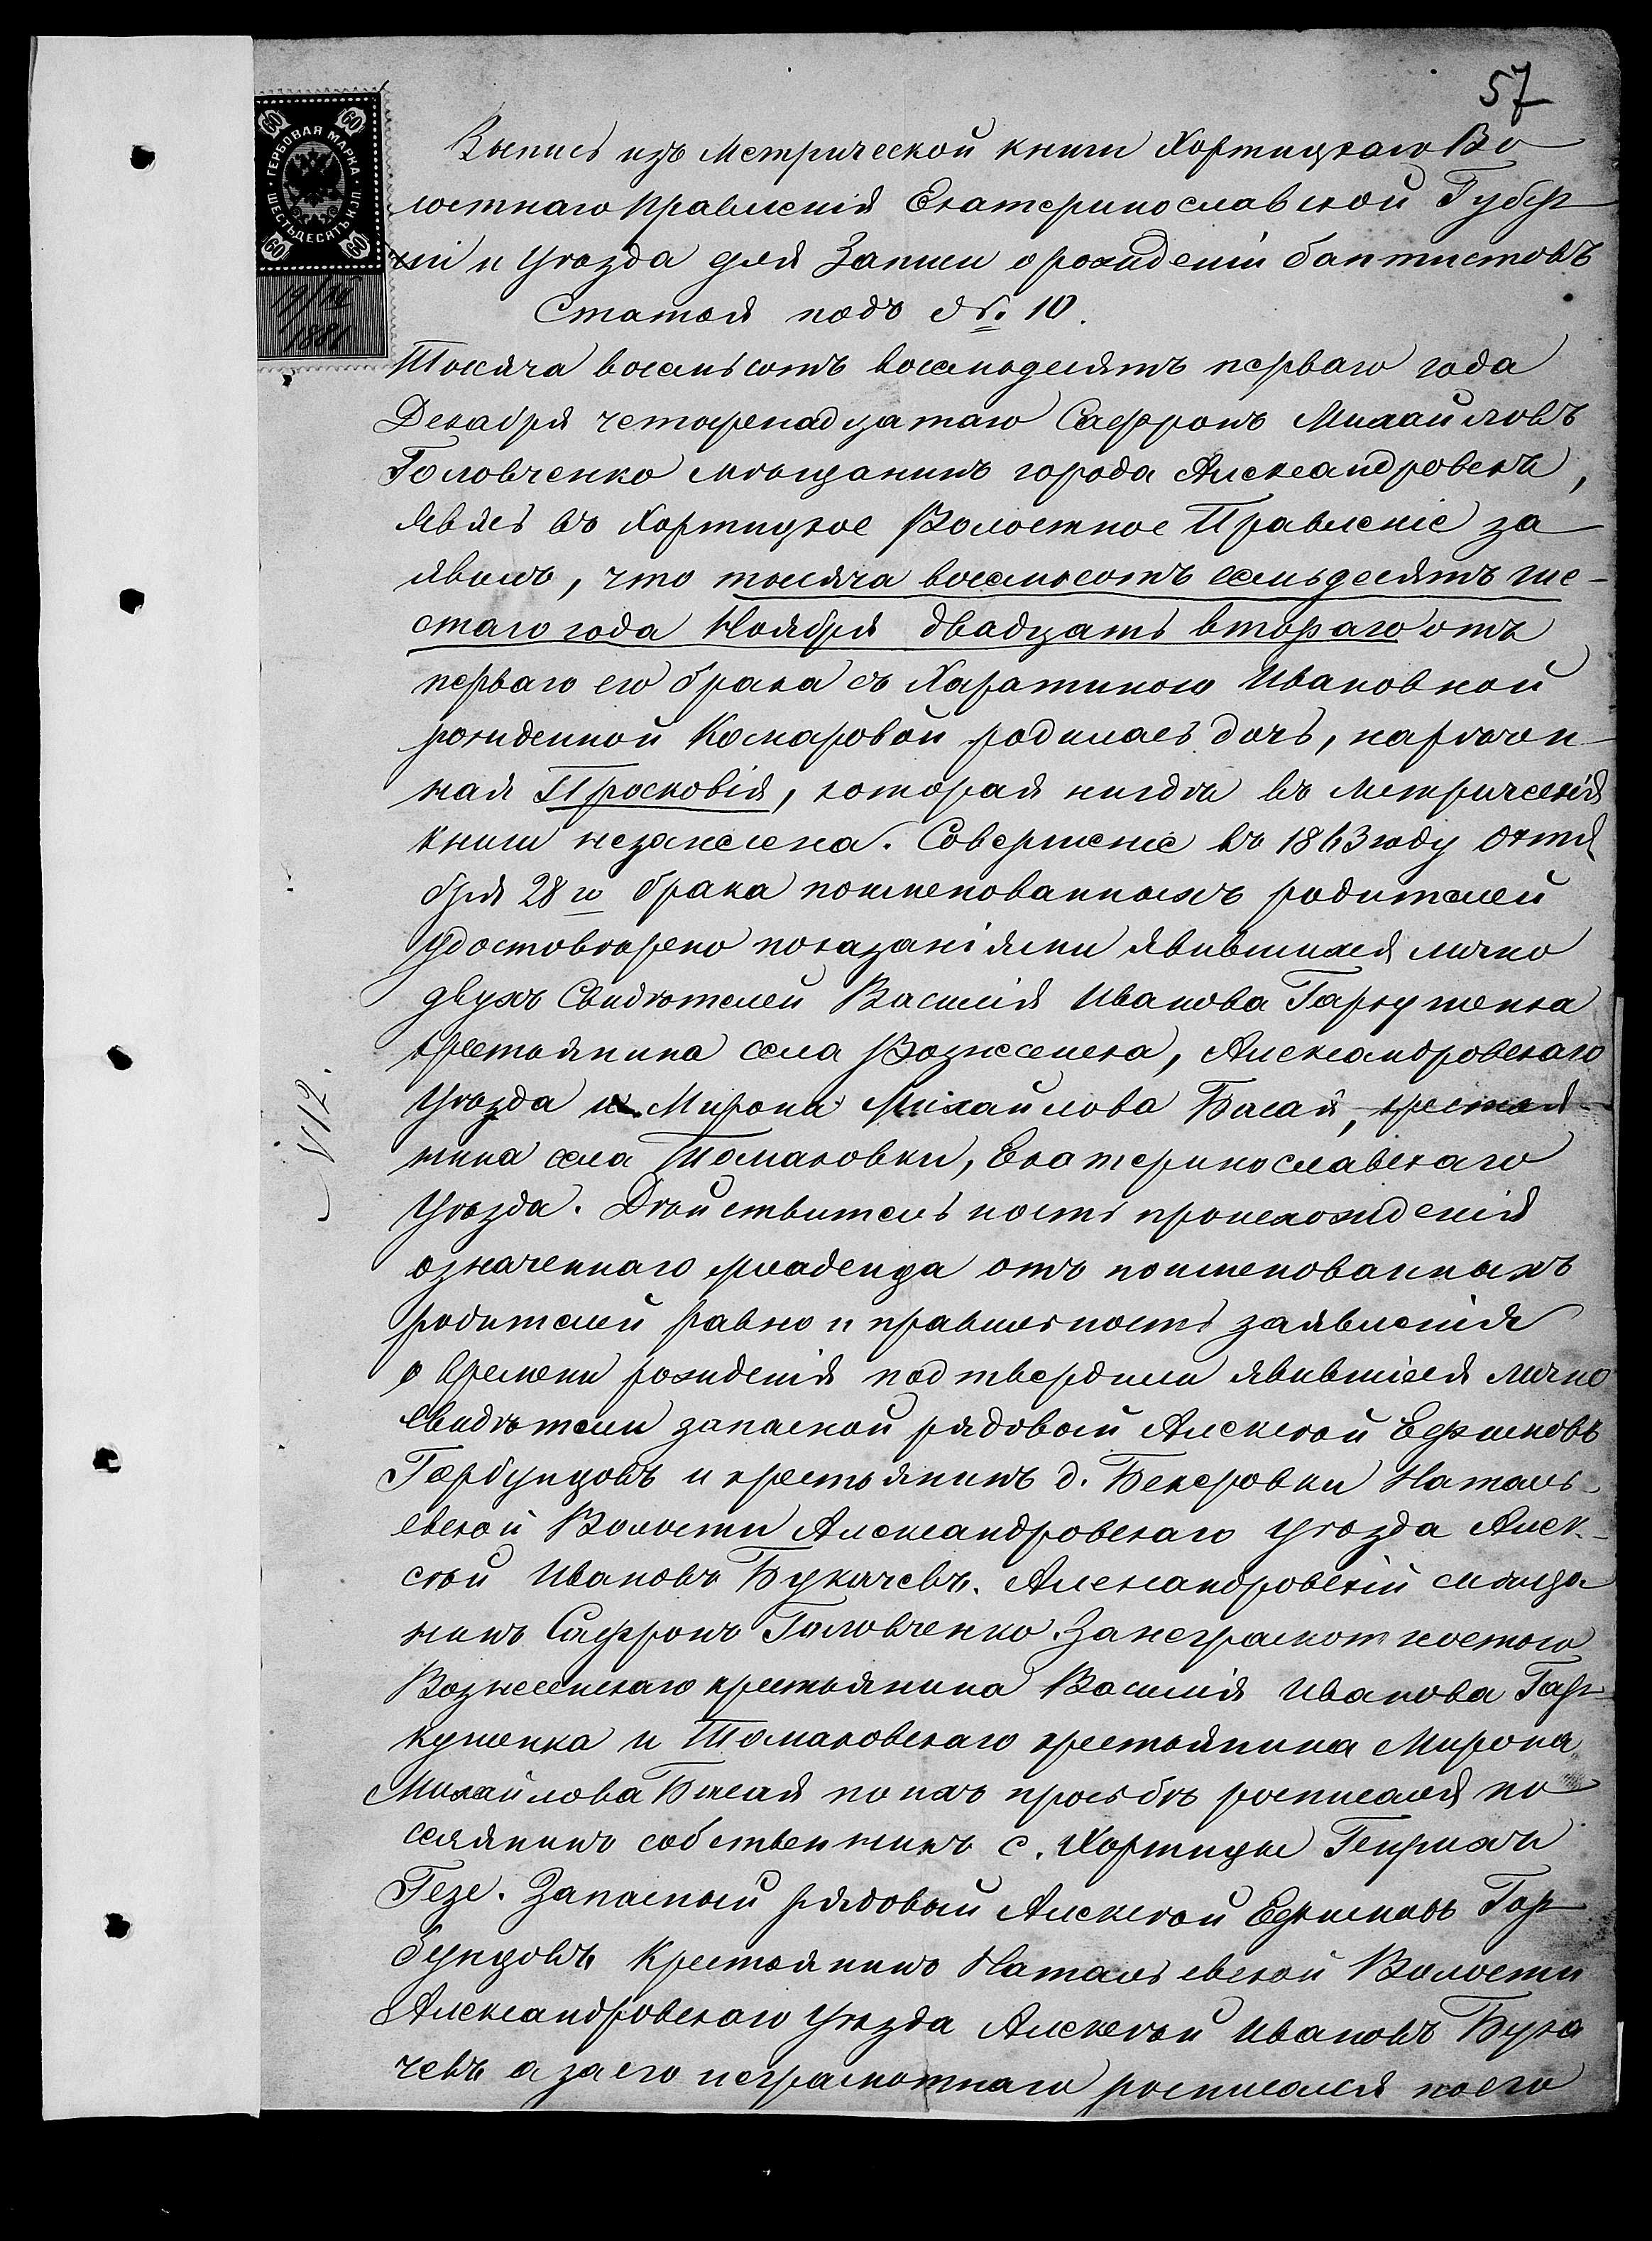 57
ГЕРБОВАЯ МАРКА
ШЕСТЬДЕСЯТЪ КОП.
60 60 60 60
19/XII
1881
Выпись изъ Метрической книги Хортицкаго Во
лостнаго Правленія Екатеринославской Губер
ніи и Уѣзда для Записи о рожденіи баптистовъ
Статья подъ №. 10.
Тысяча восемьсотъ восемьдесятъ перваго года
Декабря четырнадцатаго Сафронъ Михайловъ
Головченко мѣщанинъ города Александровскъ,
явясь въ Хортицкое Волостное Правленіе за
явилъ, что тысяча восемьсотъ семьдесятъ ше-
стаго года Ноября двадцать втораго отъ
перваго его брака съ Харатиною Ивановной
рожденной Комаровой родилась дочь, наречен
ная Просковія, которая нигдѣ въ метрическія
книги незанесена. Совершеніе въ 1863 году Октя
бря 28 го брака поименованныхъ родителей
удостовѣрено показаніями явившихся лично
двухъ Свидѣтелей Василія Иванова Гаркушенка
крестьянина села Вознесенска, Александровскаго
Уѣзда и Мирона Михайлова Басай, крестья-
нина села Томаковки, Екатеринославскаго
Уѣзда. Дѣйствительность происхожденія
означеннаго младенца отъ поименованныхъ
родителей равно и правильность заявленія
о времени рожденія подтвердили явившіеся лично
Свидѣтели запасной рядовой Алексѣй Ефимовъ
Горбунцовъ и крестьянинъ д. Бекеровки Наталь-
евской Волости Александровскаго Уѣзда Алек-
сѣй Ивановъ Букачевъ. Александровскій мѣща
нинъ Сафронъ Головченко. За неграмотностью
Вознесенскаго крестьянина Василія Иванова Гар
кушенка и Томаковскаго крестьянина Мирона
Михайлова Басая по ихъ просьбѣ росписался по
селянинъ собственникъ с. Хортицы Генрихъ
Гезе. Запасный рядовый Алексѣй Ефимовъ Гор
бунцовъ, Крестьянинъ Натальевской Волости
Александровскаго Уѣзда Алексѣй Ивановъ Бука
чевъ а за его неграмотнаго росписался по его